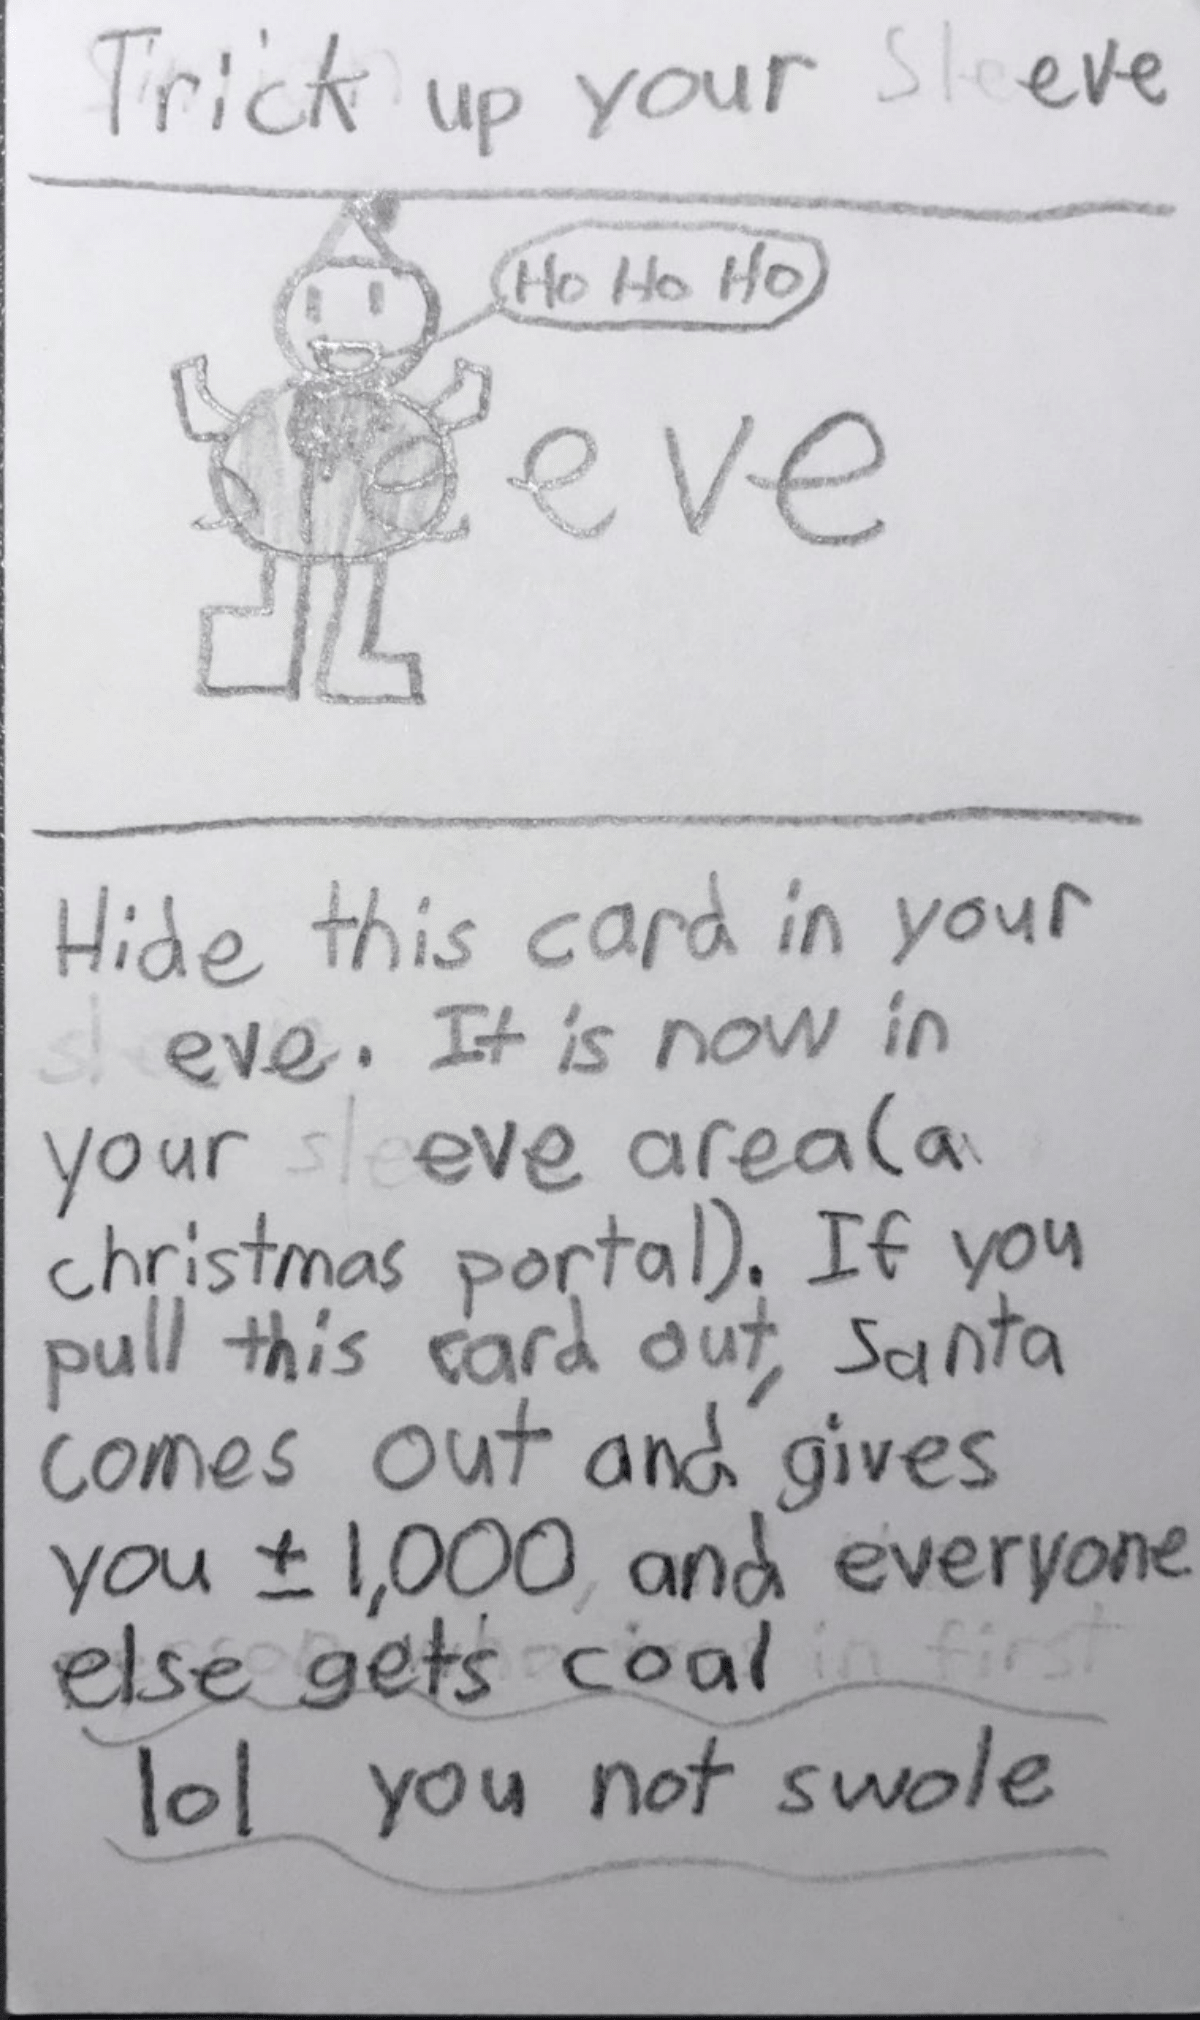 Trick up your Sleeve
Ho Ho Ho
eve
Hide this card in your
eve. It is now in
your eve area(a
christmas portal). If you
pull this card out, Santa
comes out and gives
you ± 1,000, and everyone
else gets coal
in first
lol you not swole